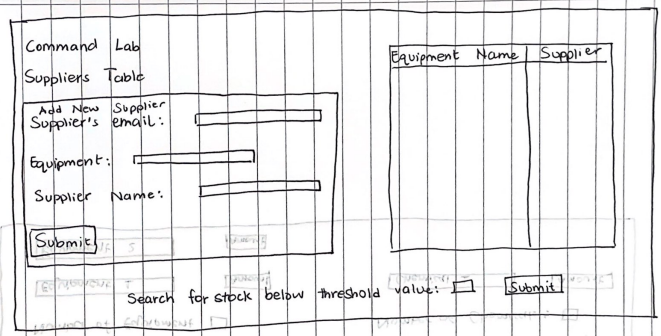 Command Lab
Suppliers Table
Add New Supplier
Supplier's email:
Equipment:
Supplier Name:
Submit
Equipment Name Supplier
Search for stock below threshold value: Submit